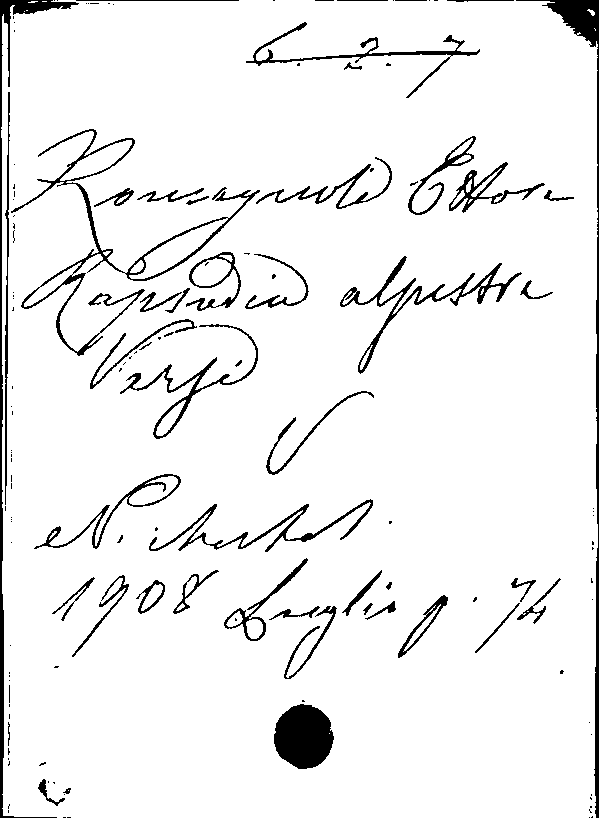 6. 2. 7
Romagnoli Ettore
Rapsodia alpestre
Versi
V
N.
1908 Luglio p. 74